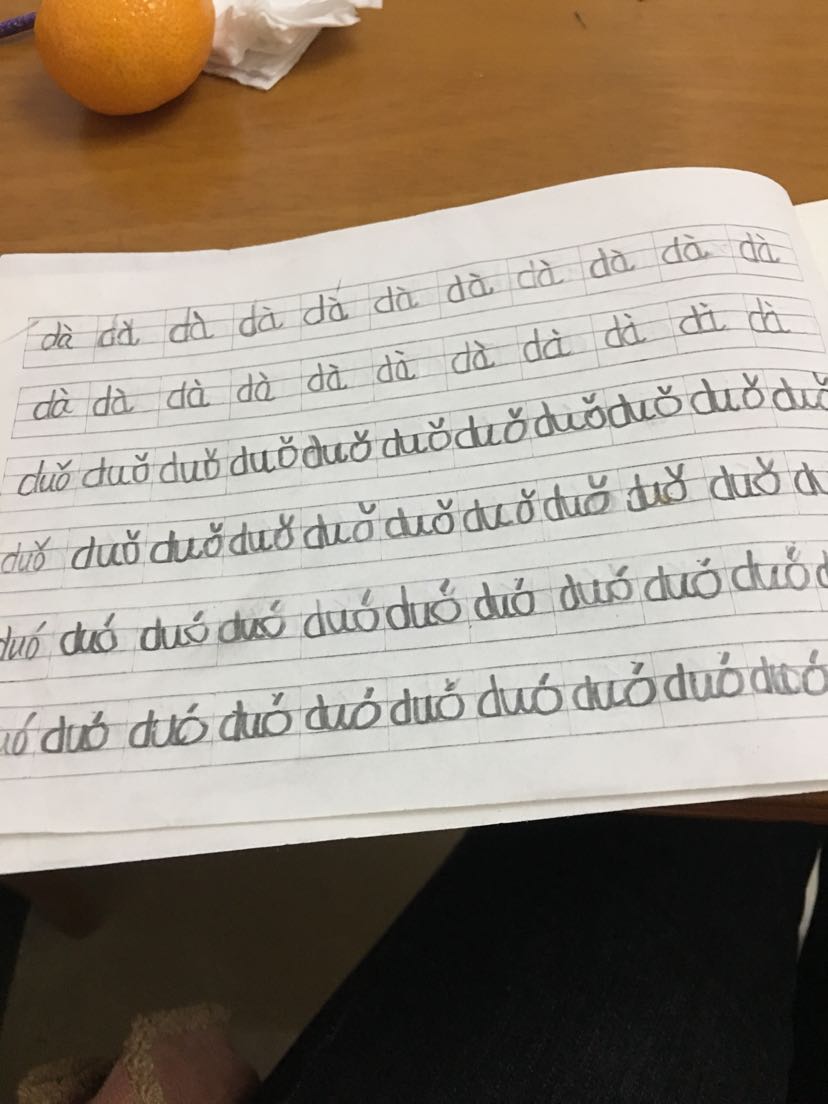 dà dà dà dà dà dà dà dà dà dà dà
dà dà dà dà dà dà dà dà dà dà dà
duǒ duǒ duǒ duǒ duǒ duǒ duǒ duǒ duǒ duǒ
duǒ duǒ duǒ duǒ duǒ duǒ duǒ duǒ duǒ duǒ
duó duó duó duó duó duó duó duó duó duó
duó duó duó duó duó duó duó duó duó